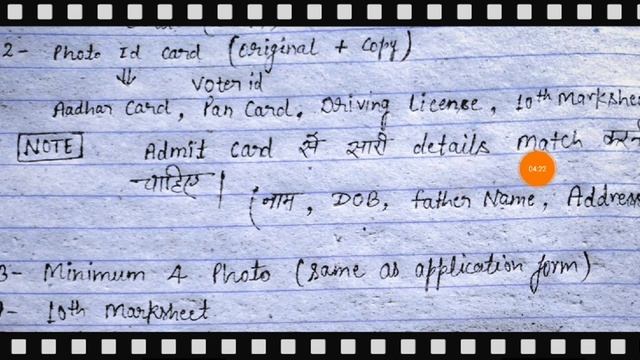 2- Photo Id Card (Original + Copy)
Voter id
Aadhar Card, Pan Card, Driving License, 10th Markshee
NOTE Admit Card से सारी details match करन
04:22
चाहिए |
(नाम, DOB, father Name, Address
3- Minimum 4 Photo (Same as application form)
10th Marksheet